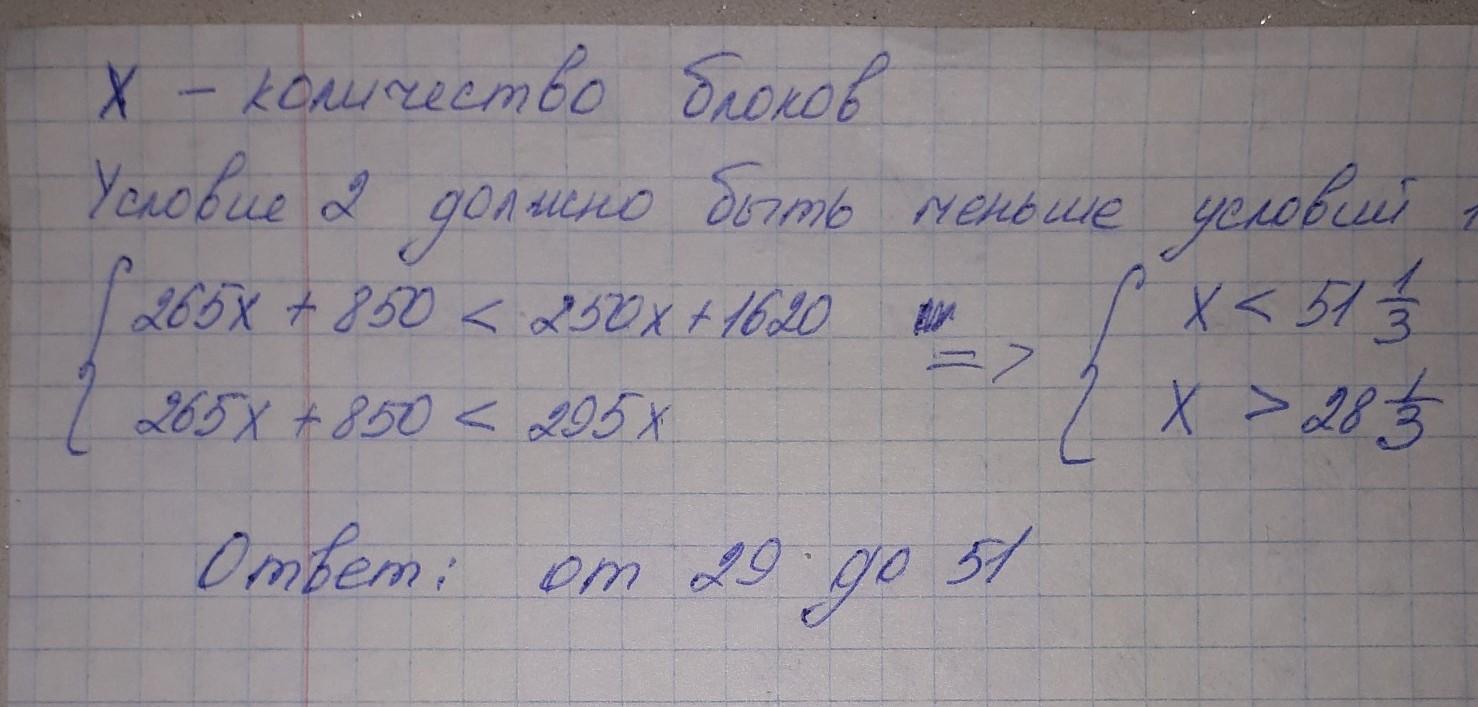 X - количество блоков
Условие 2 должно быть меньше условий 1
265x + 850 < 250x + 1620 => x < 51 1/3
265x + 850 < 295x x > 28 1/3
Ответ: от 29 до 51